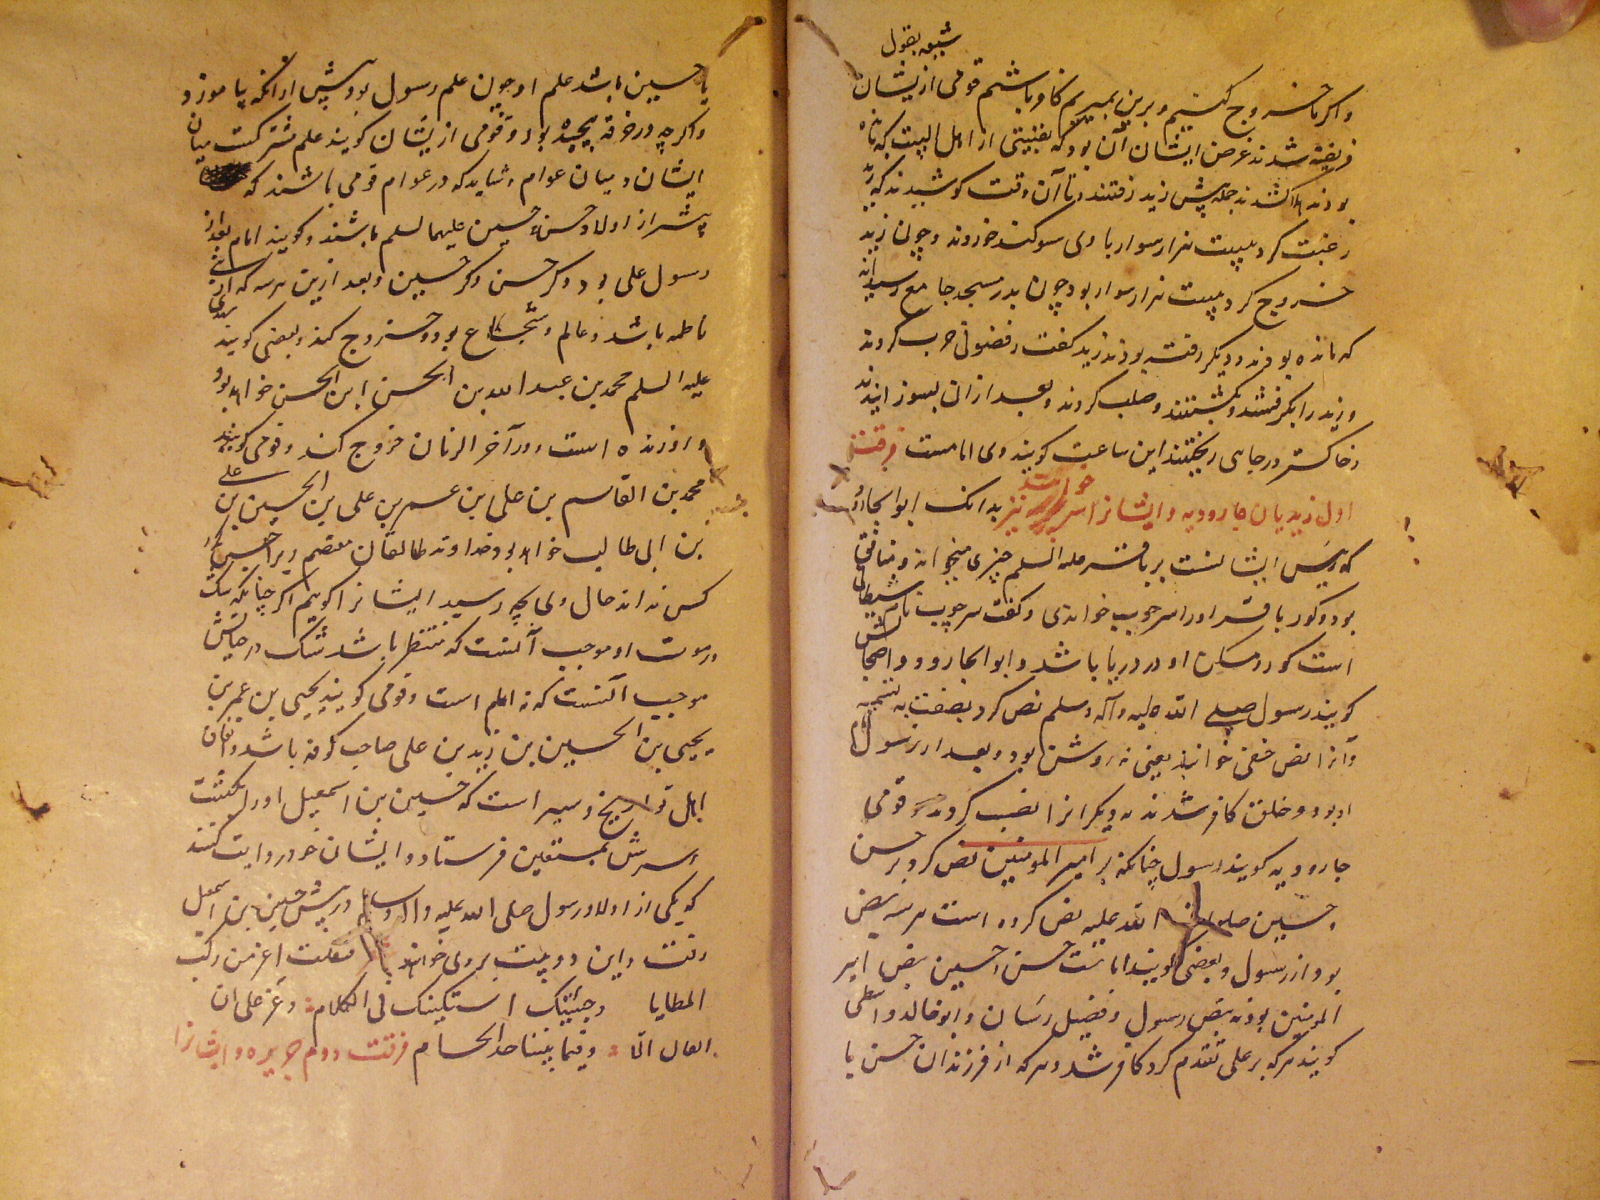 شیعه بقول
و اگر ما خروج کنیم و برین بمیریم کافر باشیم قومی از یشان
فریفته شدند غرض ایشان آن بود که بقیتی از اهل البیت که مانده
بودند کشند جمله پیش زید رفتند و تا آن وقت کوشیدند که زید
رغبت کرد بیست هزار سوار با وی سوکند خوردند و چون زید
خروج کرد بیست هزار سوار بود چون بدر مسجد جامع رسید
که مانده بودند و دیگر رفته بودند زید گفت رفضونی حرب کردند
و زید را بگرفتند و بکشتند و صلب کردند و بعد از ان بسوزانیدند
و خاکستر در جاهی ریختند این ساعت کویند وی امامست فرقت
اول زیدیان جارودیه و ایشانرا سرخوابیه نیز بدانک ابوالجارود
که رئیس ایشانست بر باقر علیه السلم چیزی میخواند و منافق
بود و کور باقر او را سرحوب خواندی و گفت سرحوب نام شیطانی
است کور و مسکن او در دریا باشد و ابوالجارود و اصحابش
کویند رسول صلی الله علیه وآله وسلم نص کرد بصفت نه بتسمیه
و آنرا نص خفی خوانند یعنی نه روشن بود و بعد از رسول امام
او بود و خلق کافر شدند که دیکرانرا نصب کردند و قومی
جارودیه کویند رسول چنانکه بر امیر المومنین نص کرد بر حسن
و حسین صلوات الله علیه نص کرده است هر سه بنص
بود از رسول و بعضی کویند امامت حسن و حسین بنص امیر
المومنین بود نه بنص رسول و فضیل رسان و ابو خالد واسطی
کویند هر که بر علی تقدم کرد کافر شد و هر که از فرزندان حسن یا
یا حسین باشد علم او چون علم رسول بود پیش از انکه بیاموزد
و اگرچه در خرقه پیچیده بود و قومی از یشان کویند علم مشترکست میان
ایشان و میان عوام و شاید که در عوام قومی باشند که
پیشتر از اولاد حسن و حسین علیهما السلم باشند و کویند امام بعد از
رسول علی بود دگر حسن دگر حسین و بعد ازین هر سه که از
فاطمه باشد و عالم و شجاع بود و خروج کند و بعضی کویند مهدی
علیه السلم محمد بن عبد الله بن الحسن ابن الحسن خواهد بود
و او زنده است و در آخر الزمان خروج کند و قومی کویند
محمد بن القاسم بن علی بن عمر بن علی بن الحسین بن علی
بن ابی طالب خواهد بود خداوند طالقان معتصم ویرا حبس کرد
کس نداند حال وی بچه رسید ایشانرا کوییم اگر چنانکه شک
در موت او موجب آنست که منتظر باشد شک در حیاتش
موجب آنست که نه امام است و قومی کویند یحیی بن عمر بن
یحیی بن الحسین بن زید بن علی صاحب کوفه باشد و اتفاق
اهل تواریخ و سیر است که حسین بن اسمعیل او را بکشت
و سرش بمستعین فرستاد و ایشان خود روایت کنند
که یکی از اولاد رسول صلی الله علیه واله وسلم در پیش حسین بن اسمعیل
رفت و این دو بیت بر وی خواند قتلت اعز من رکب
المطایا وجئتک استلینک فی الکلام وعز علی ان
القاک الا وفیما بیننا حد الحسام فرقت دوم جریریه و ایشانرا